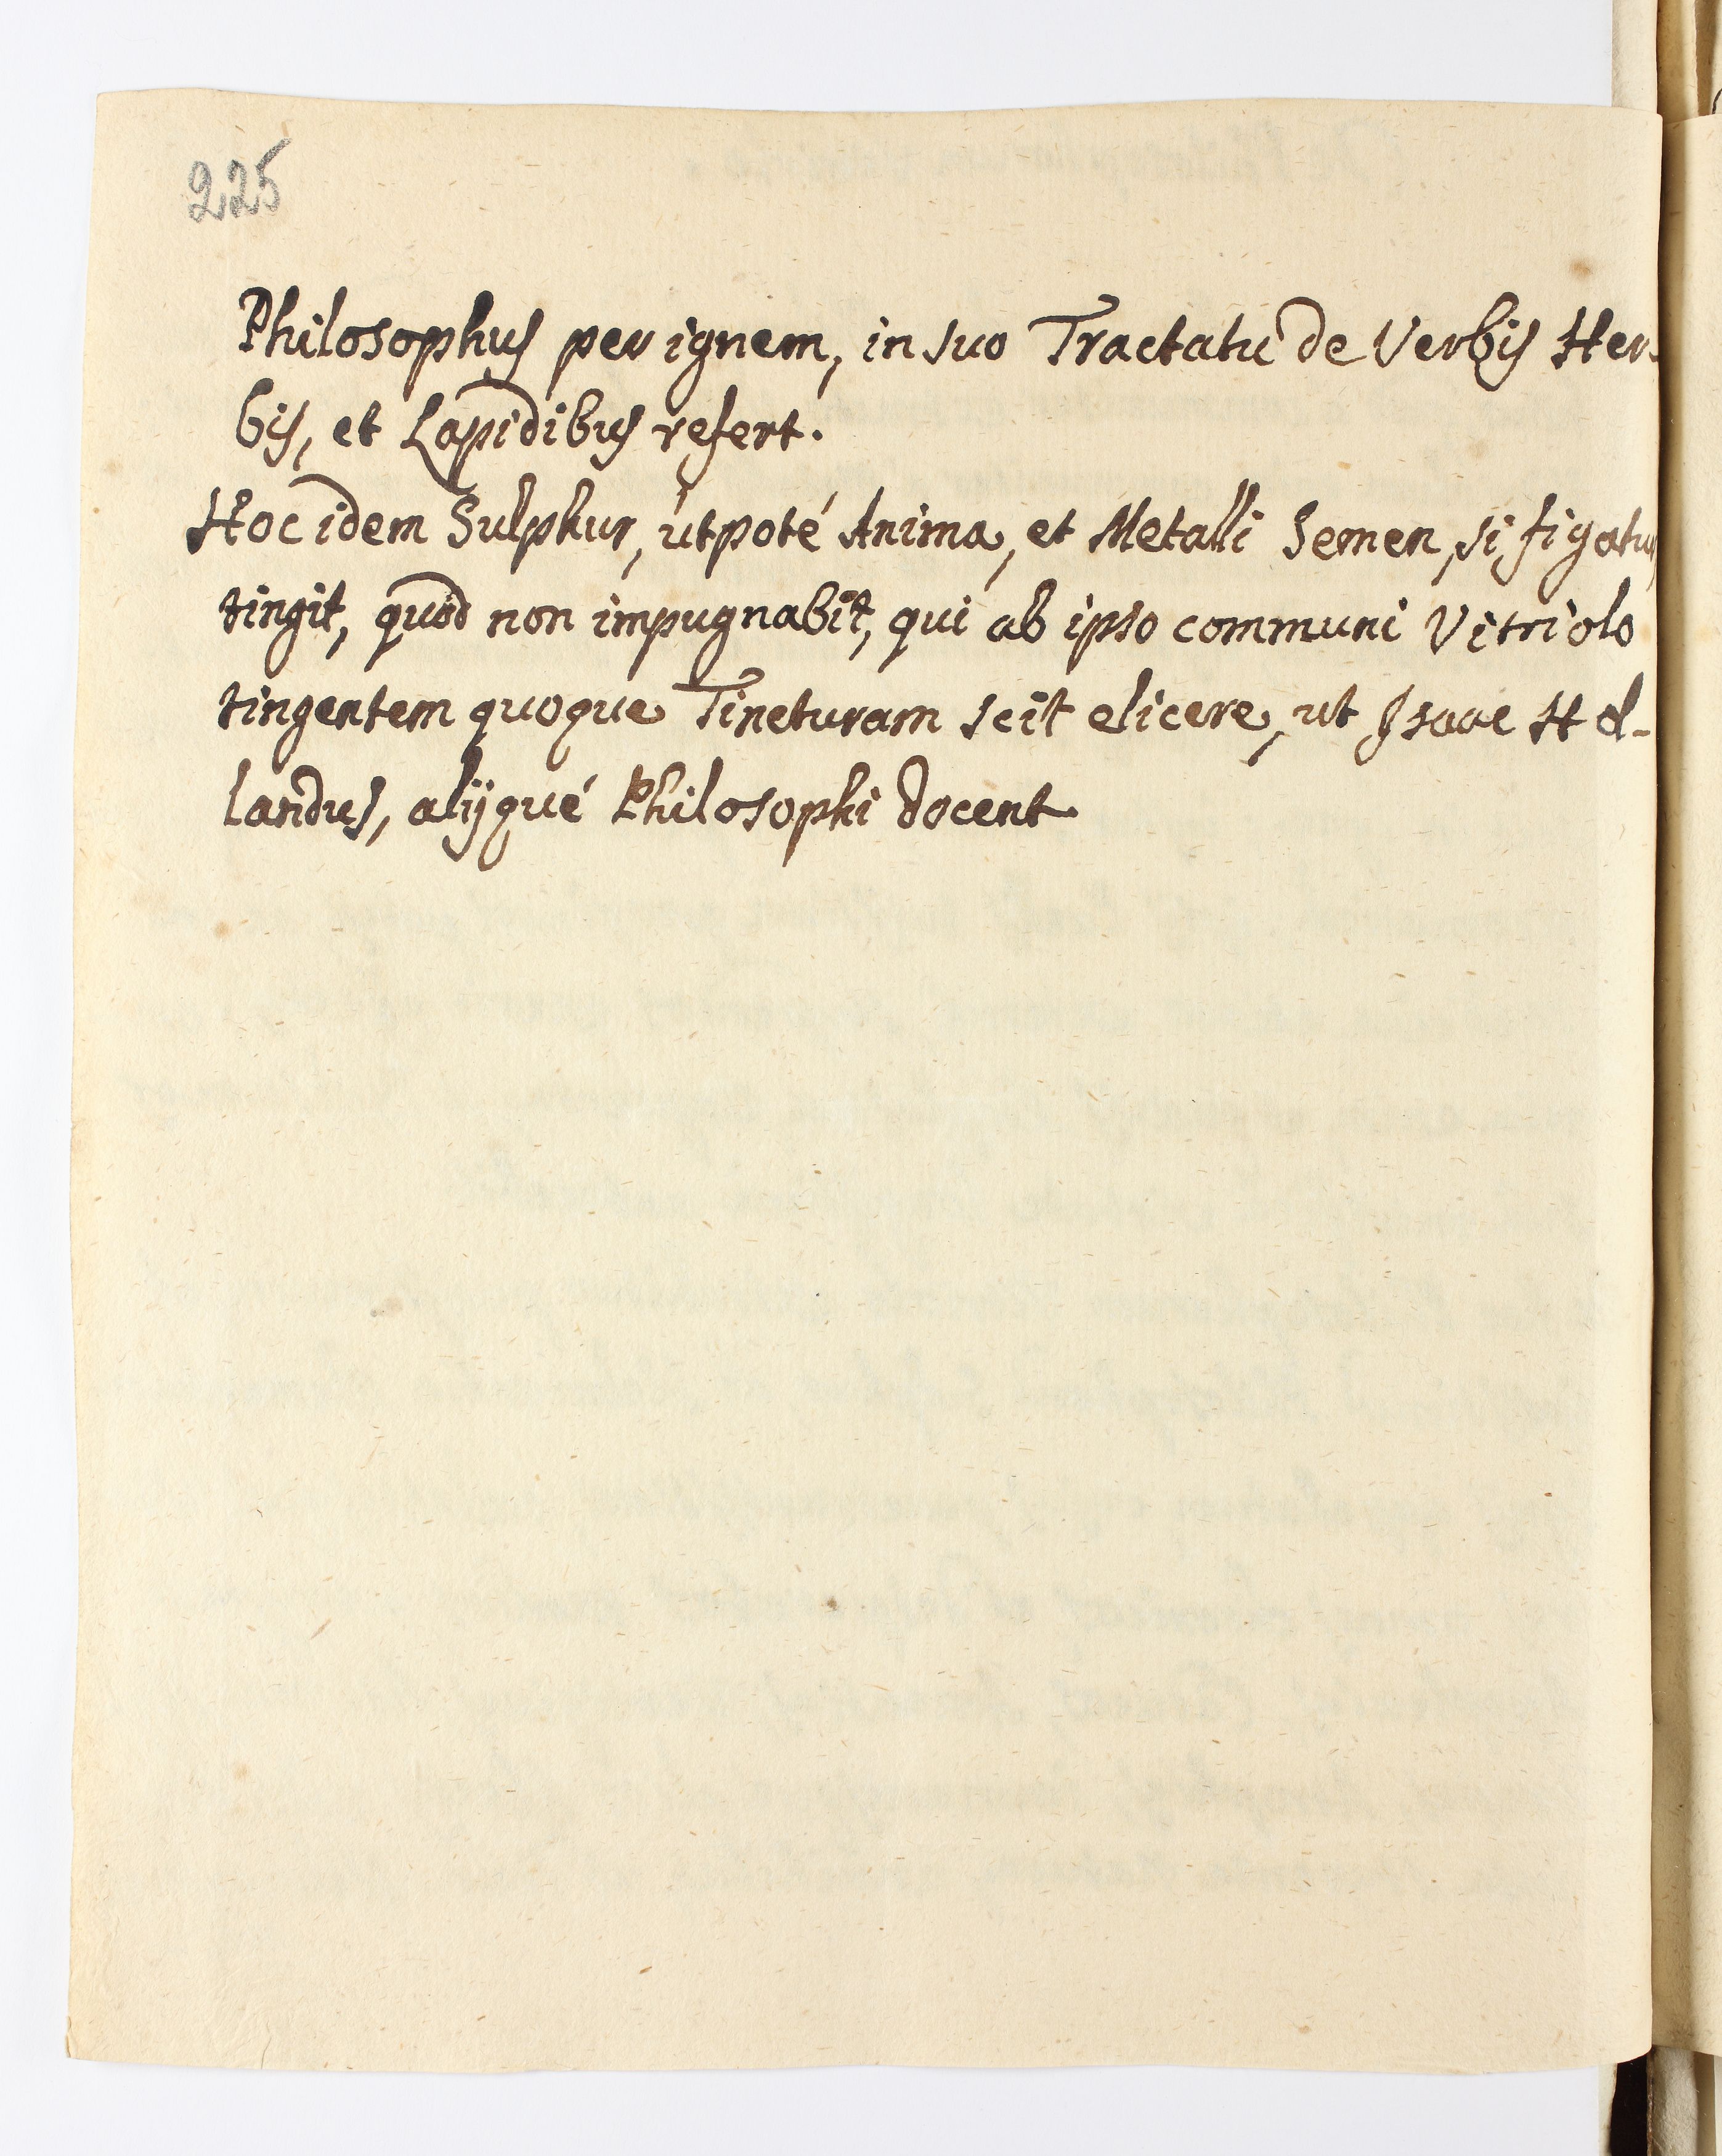 225
Philosophus per ignem, in suo Tractatu de Verbis Her-
bis, et Lapidibus refert.
Hoc idem Sulphur, utpoté Anima, et Metalli Semen, si figatur,
tingit, quod non impugnabit, qui ab ipso communi Vitriolo
tingentem quoque Tincturam scit elicere, ut Isaac Hol-
landus, alijqué Philosophi docent